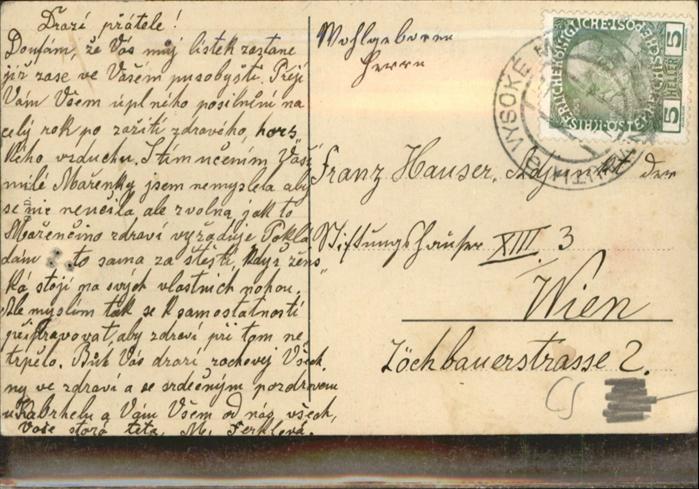 Drazí přátelé!
Doufám, že Vás můj lístek zastane
již zase ve Vašem působyšti. Přeji
Vám Všem úplného posilnění na
celý rok po zažití zdravého, hors
kého vzduchu. S tím učením Vaší
milé Mařenky jsem nemyslela aby
se nic neučila, ale zvolna, jak to
Mařenčino zdraví vyžaduje. Poklá
dám to sama za štěstí, když žens
ká stojí na svých vlastních nohou.
Ale myslím tak se k samostatnosti
připravovat, aby zdraví při tom ne
trpělo. Bůh Vás drazí zachovej Všech
ny ve zdraví a se srdečným pozdravem
u Kabrhelu a Vám Všem od nás všech,
Vaše stará teta, M. Ferklová.
Wohlgeboren
Herrn
Franz Hauser, Adjunkt der
Stiftungshäuser XIII. 3
Wien
Löchbauerstrasse 2.
VYSOKÉ
5 HELLER 5